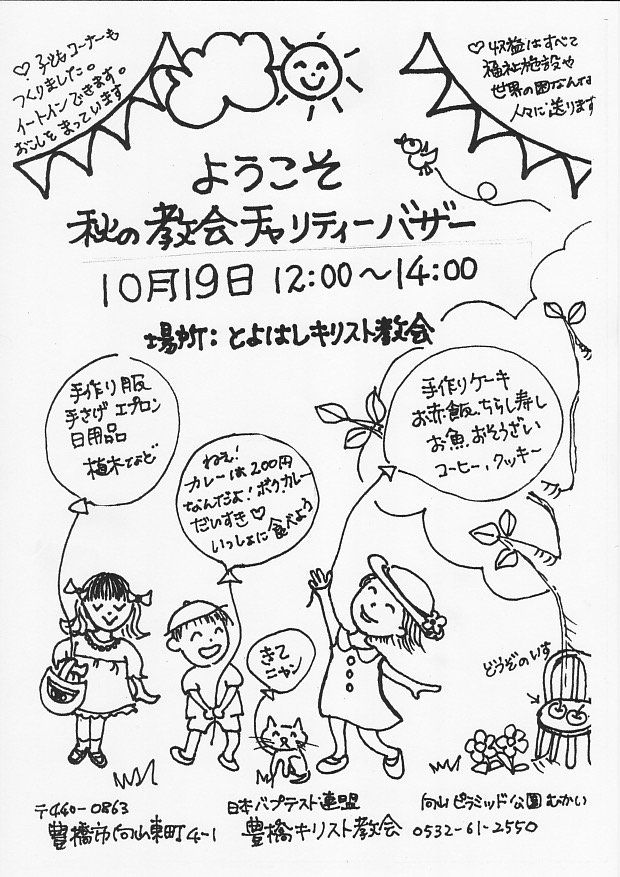 ♡子どもコーナーも
つくりました。
イートインできます。
おこしをまっています
♡収益はすべて
福祉施設や
世界の困なんな
人々に送ります
ようこそ
秋の教会チャリティーバザー
10月19日 12:00～14:00
場所：とよはしキリスト教会
手作り服
手さげ エプロン
日用品
植木など
ねぇ!
カレーは200円
なんだよ!ボクカレー
だいすき♡
いっしょに食べよう
手作りケーキ
お赤飯、ちらし寿し
お魚、おそうざい
コーヒー、クッキー
きて
ニャン
どうぞのいす
〒440-0863
豊橋市向山東町4-1
日本バプテスト連盟
豊橋キリスト教会
向山ピラミッド公園むかい
0532-61-2550